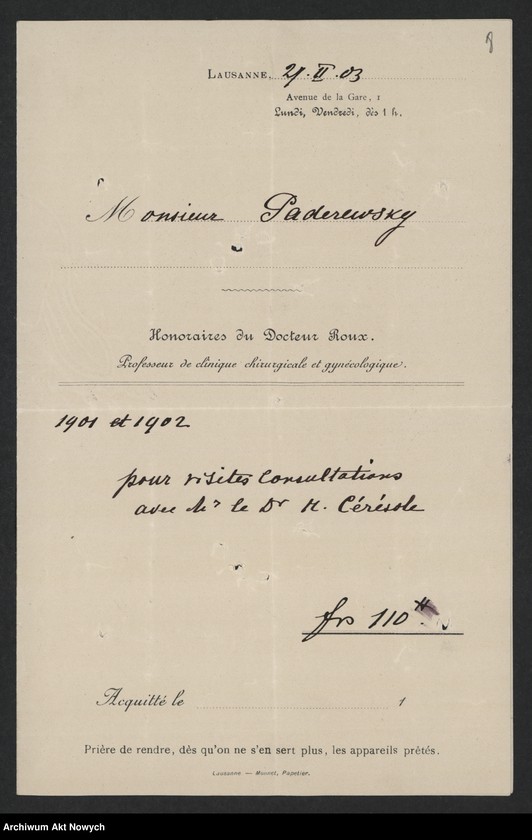 8
LAUSANNE, 21. II. 03
Avenue de la Gare, 1
Lundi, Vendredi, dès 1 h.
Monsieur Paderewsky
Honoraires du Docteur Roux.
Professeur de clinique chirurgicale et gynécologique.
1901 et 1902
pour visites consultations
avec Mr le Dr H. Cérésole
frs 110
Acquitté le 1
Prière de rendre, dès qu'on ne s'en sert plus, les appareils prêtés.
Lausanne — Monnet, Papetier.
Archiwum Akt Nowych